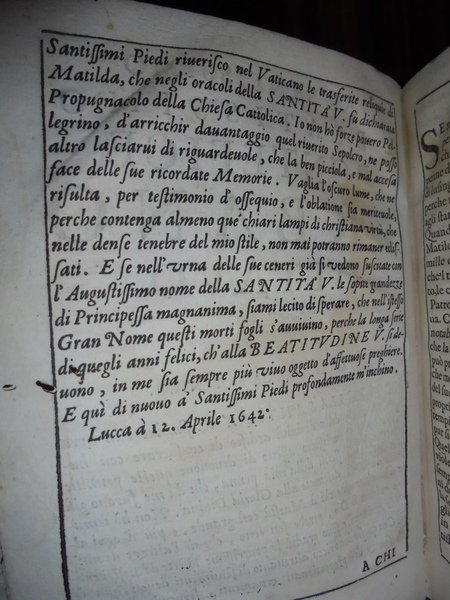 Santissimi Piedi riuerisco nel Vaticano le trasferite reliquie di
Matilda, che negli oracoli della SANTITA' V. fù dichiarata
Propugnacolo della Chiesa Cattolica. Io non hò forze pouero Pel-
legrino, d'arricchir dauantaggio quel riuerito Sepolcro, ne posso
altro lasciarui di riguardeuole, che la ben picciola, e mal accesa
face delle sue ricordate Memorie. Vaglia l'oscuro lume, che ne
risulta, per testimonio d'ossequio, e l'oblatione sia meriteuole,
perche contenga almeno que' chiari lampi di christiana virtù, che
nelle dense tenebre del mio stile, non mai potranno rimaner eclis-
sati. E se nell'vrna delle sue ceneri già si vedono suscitate con
l'Augustissimo nome della SANTITA' V. le sopite grandezze
di Principessa magnanima, siami lecito di sperare, che nell'istesso
Gran Nome questi morti fogli s'auuiuino, perche la longa serie
di quegli anni felici, ch'alla BEATITVDINE V. si de-
uono, in me sia sempre più viuo oggetto d'affettuose preghiere.
E quì di nuouo a' Santissimi Piedi profondamente m'inchino.
Lucca à 12. Aprile 1642.
A CHI